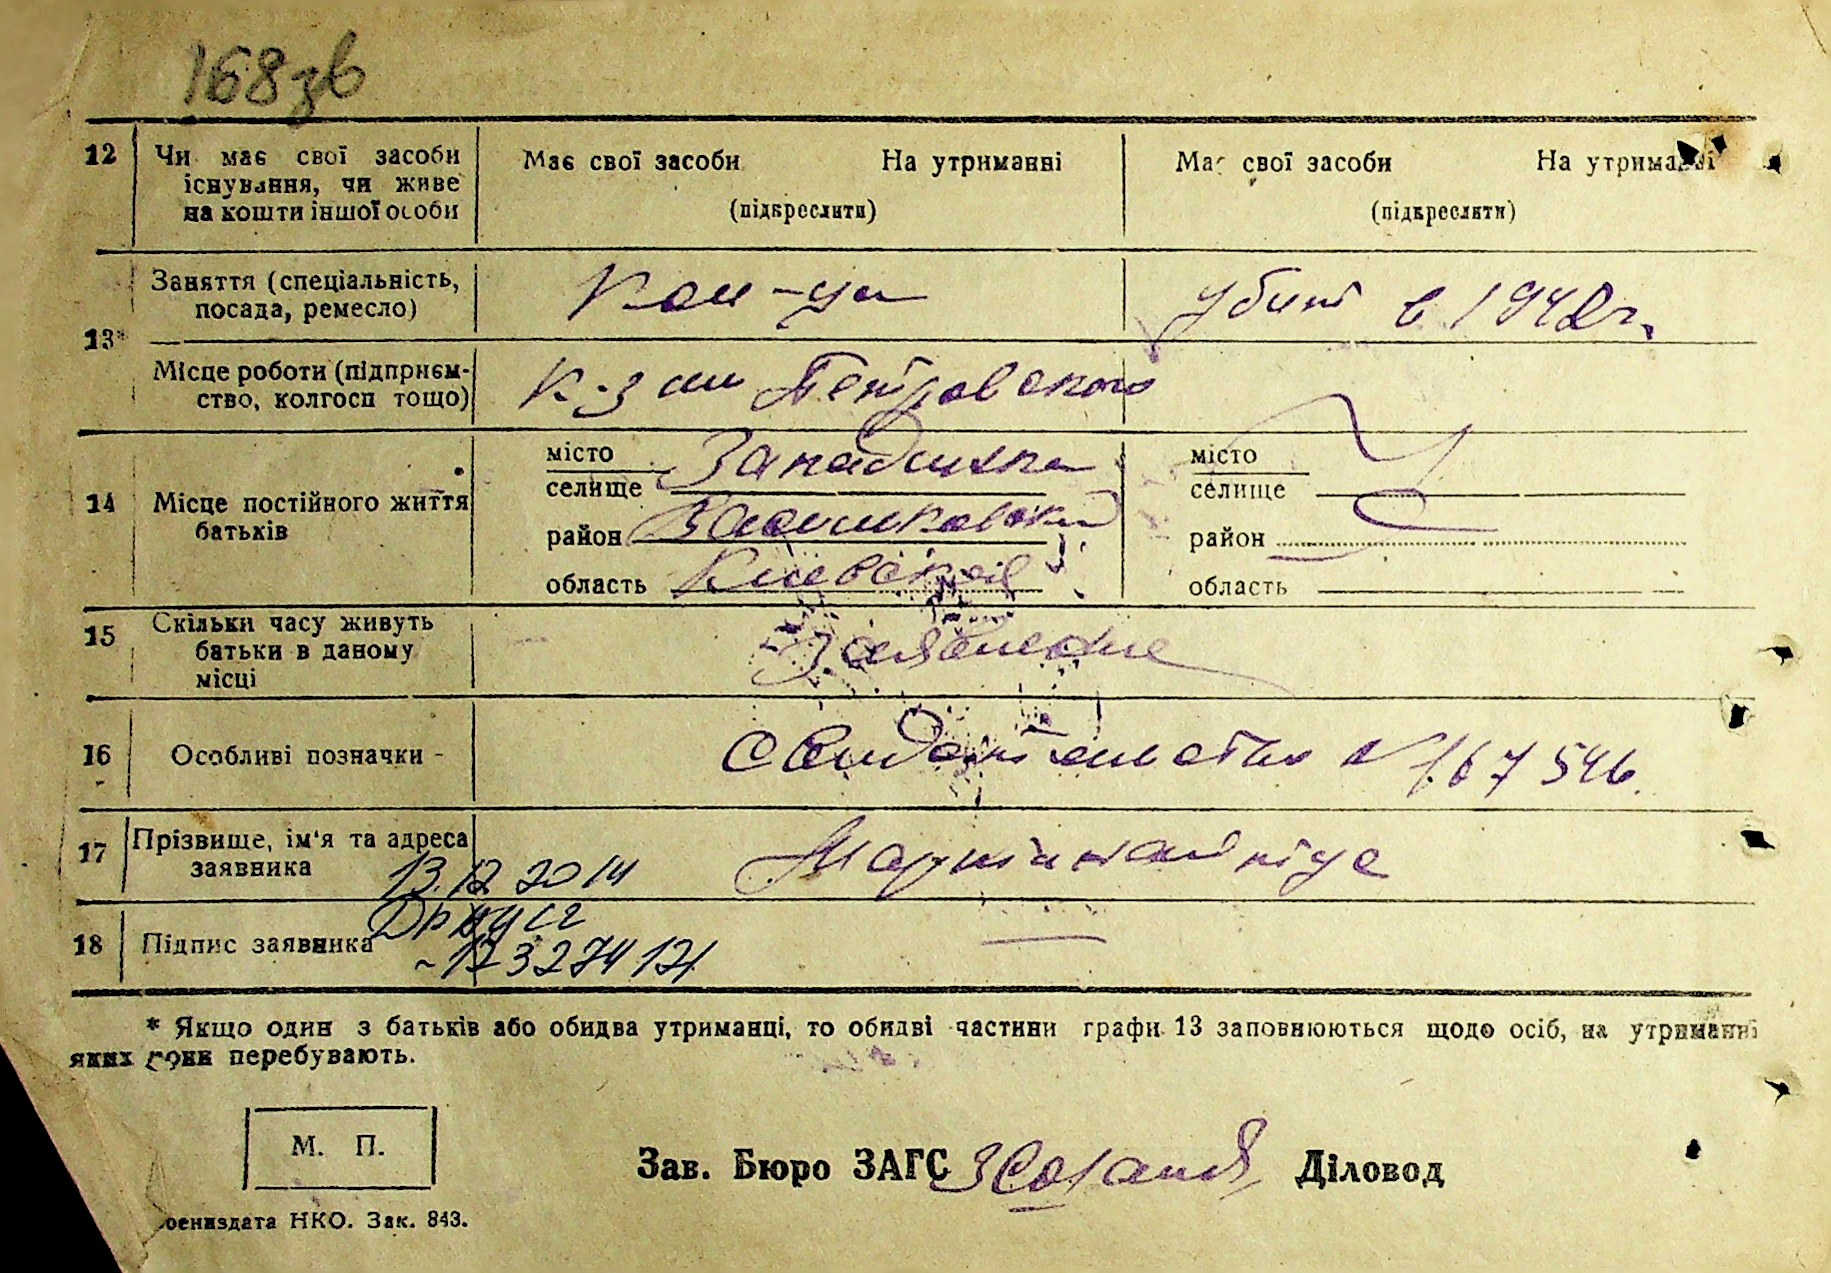 168зв
12 Чи має свої засоби існування, чи живе на кошти іншої особи
Має свої засоби На утриманні
(підкреслити)
Має свої засоби На утриманні
(підкреслити)
13* Заняття (спеціальність, посада, ремесло)
Кол-ца
убит в 1942 г.
Місце роботи (підприємство, колгосп тощо)
к-з им Петровского
14 Місце постійного життя батьків
місто
селище Западинка
район
область Киевской
місто
селище
район
область
15 Скільки часу живуть батьки в даному місці
Заявление
16 Особливі позначки -
Свидетельство № 167546.
17 Прізвище, ім'я та адреса заявника
13.12 2014
18 Підпис заявника
* Якщо один з батьків або обидва утриманці, то обидві частини графи 13 заповнюються щодо осіб, на утриманні
яких вони перебувають.
М. П.
Зав. Бюро ЗАГС Діловод
Воениздата НКО. Зак. 843.